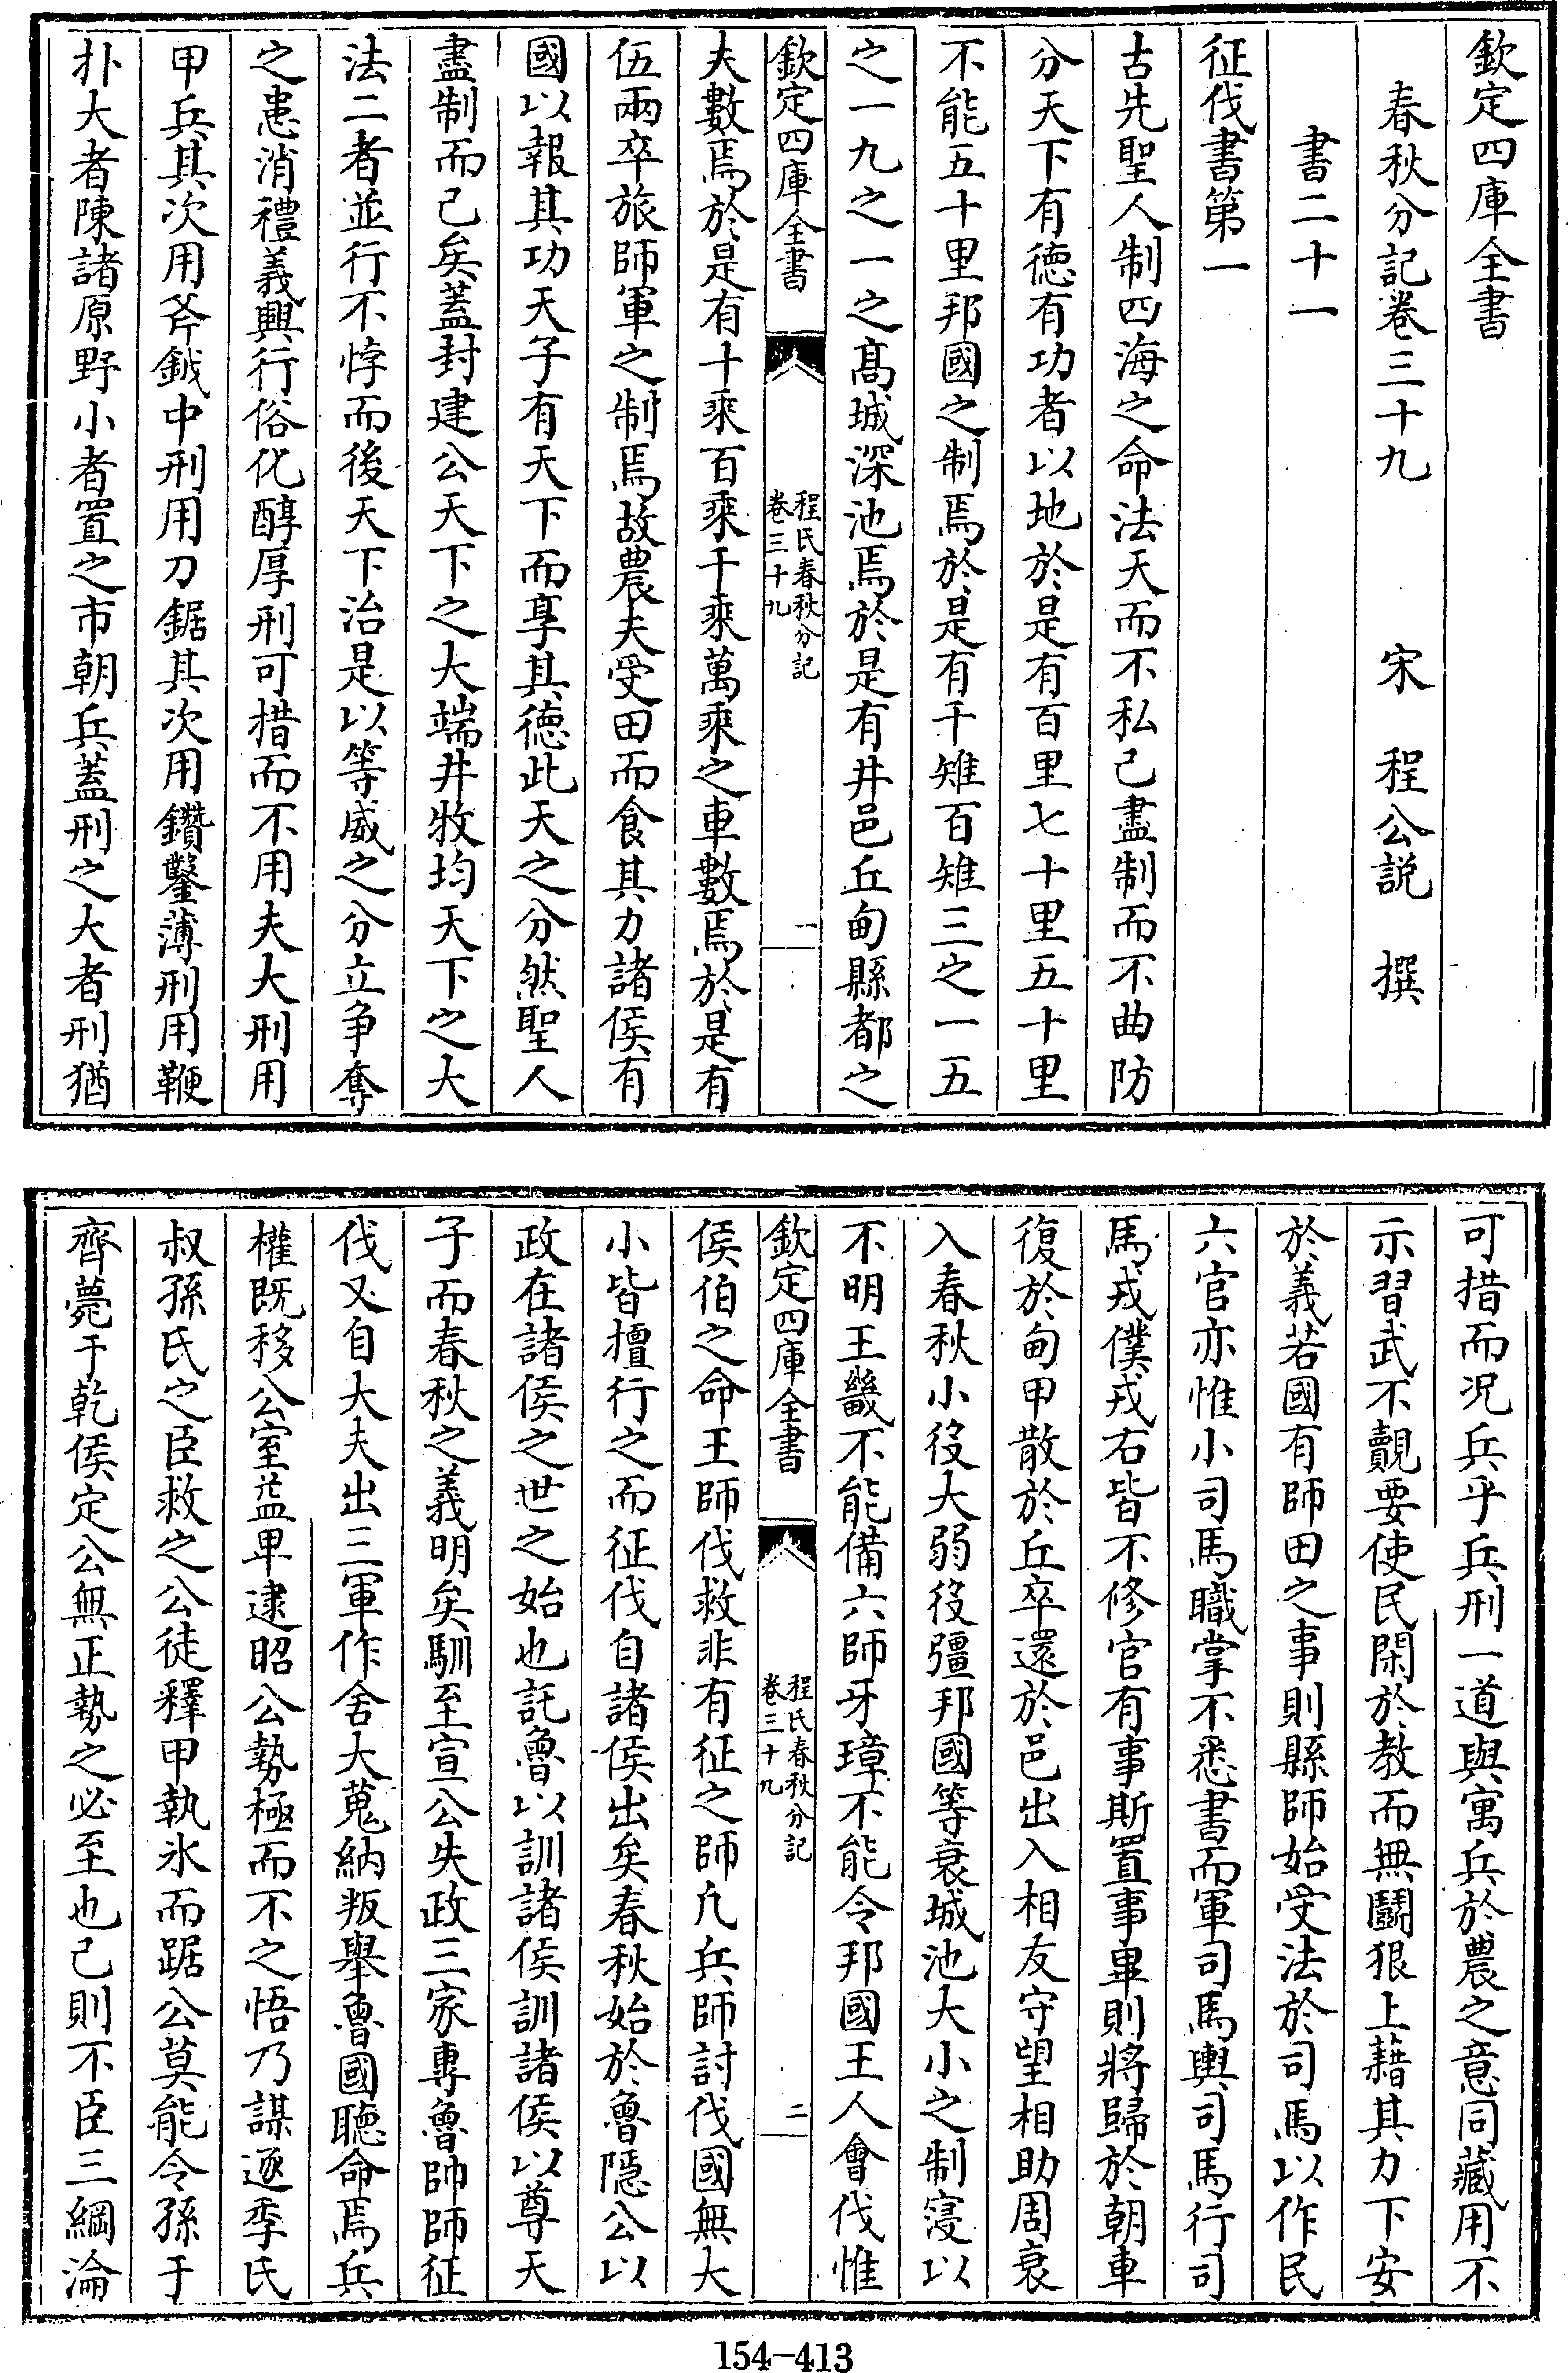 欽定四庫全書
春秋分記卷三十九　宋　程公說　撰
書二十一
征伐書第一
古先聖人制四海之命法天而不私己盡制而不曲防
分天下有德有功者以地於是有百里七十里五十里
不能五十里邦國之制焉於是有千雉百雉三之一五
之一九之一之高城深池焉於是有井邑丘甸縣都之
欽定四庫全書
程氏春秋分記
卷三十九
一
夫數焉於是有十乘百乘千乘萬乘之車數焉於是有
伍兩卒旅師軍之制焉故農夫受田而食其力諸侯有
國以報其功天子有天下而享其德此天之分然聖人
盡制而已矣蓋封建公天下之大端井牧均天下之大
法二者並行不悖而後天下治是以等威之分立爭奪
之患消禮義興行俗化醇厚刑可措而不用夫大刑用
甲兵其次用斧鉞中刑用刀鋸其次用鑽鑿薄刑用鞭
扑大者陳諸原野小者置之市朝兵蓋刑之大者刑猶
可措而况兵乎兵刑一道與寓兵於農之意同藏用不
示習武不覿要使民閑於教而無鬬狠上藉其力下安
於義若國有師田之事則縣師始受法於司馬以作民
六官亦惟小司馬職掌不悉書而軍司馬輿司馬行司
馬戎僕戎右皆不修官有事斯置事畢則將歸於朝車
復於甸甲散於丘卒還於邑出入相友守望相助周衰
入春秋小役大弱役彊邦國等衰城池大小之制寖以
不明王畿不能備六師牙璋不能令邦國王人會伐惟
欽定四庫全書
程氏春秋分記
卷三十九
二
侯伯之命王師伐救非有征之師凡兵師討伐國無大
小皆擅行之而征伐自諸侯出矣春秋始於魯隱公以
政在諸侯之世之始也託魯以訓諸侯訓諸侯以尊天
子而春秋之義明矣馴至宣公失政三家專魯帥師征
伐又自大夫出三軍作舍大蒐納叛舉魯國聽命焉兵
權既移公室益卑逮昭公勢極而不之悟乃謀逐季氏
叔孫氏之臣救之公徒釋甲執氷而踞公莫能令孫于
齊薨于乾侯定公無正勢之必至也己則不臣三綱淪
154-413